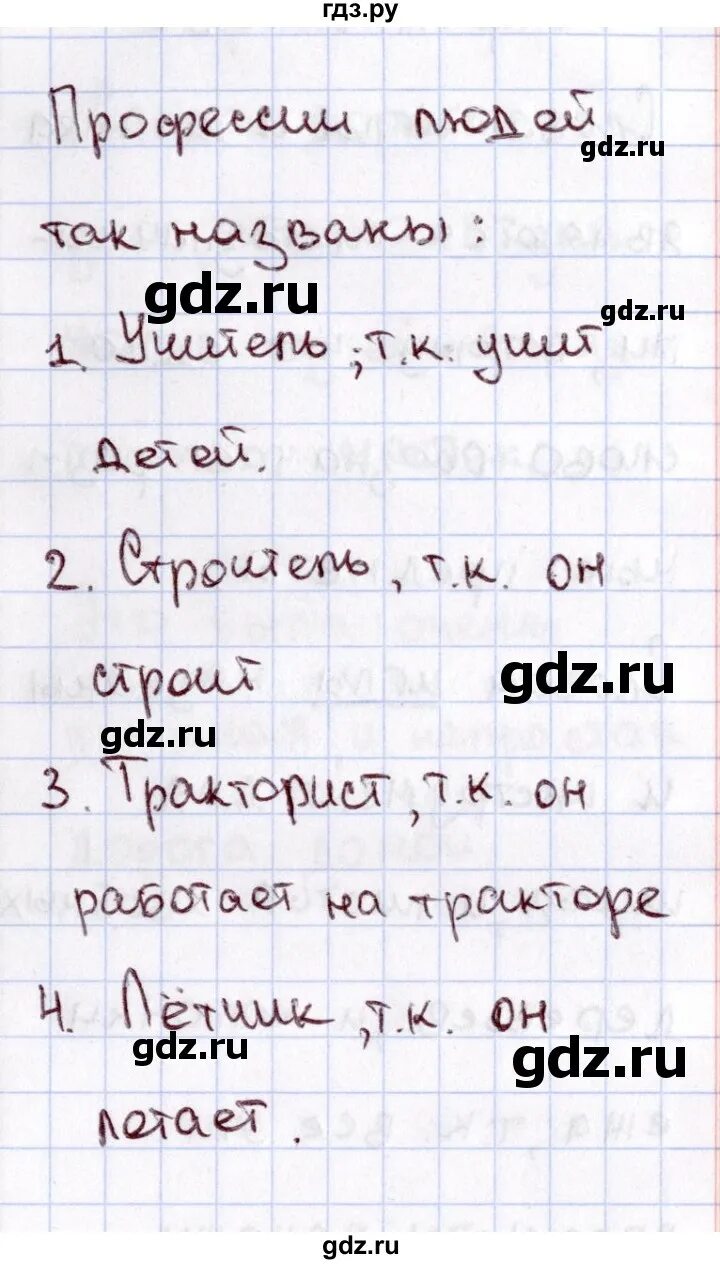 гдз.ру
Профессии людей
gdz.ru
так названы:
gdz.ru
gdz.ru
1. Учитель, т.к. учит
детей.
2. Строитель, т.к. он
gdz.ru
строит
gdz.ru
3. Тракторист, т.к. он
работает на тракторе
4. Лётчик, т.к. он
gdz.ru
gdz.ru
летает.
gdz.ru